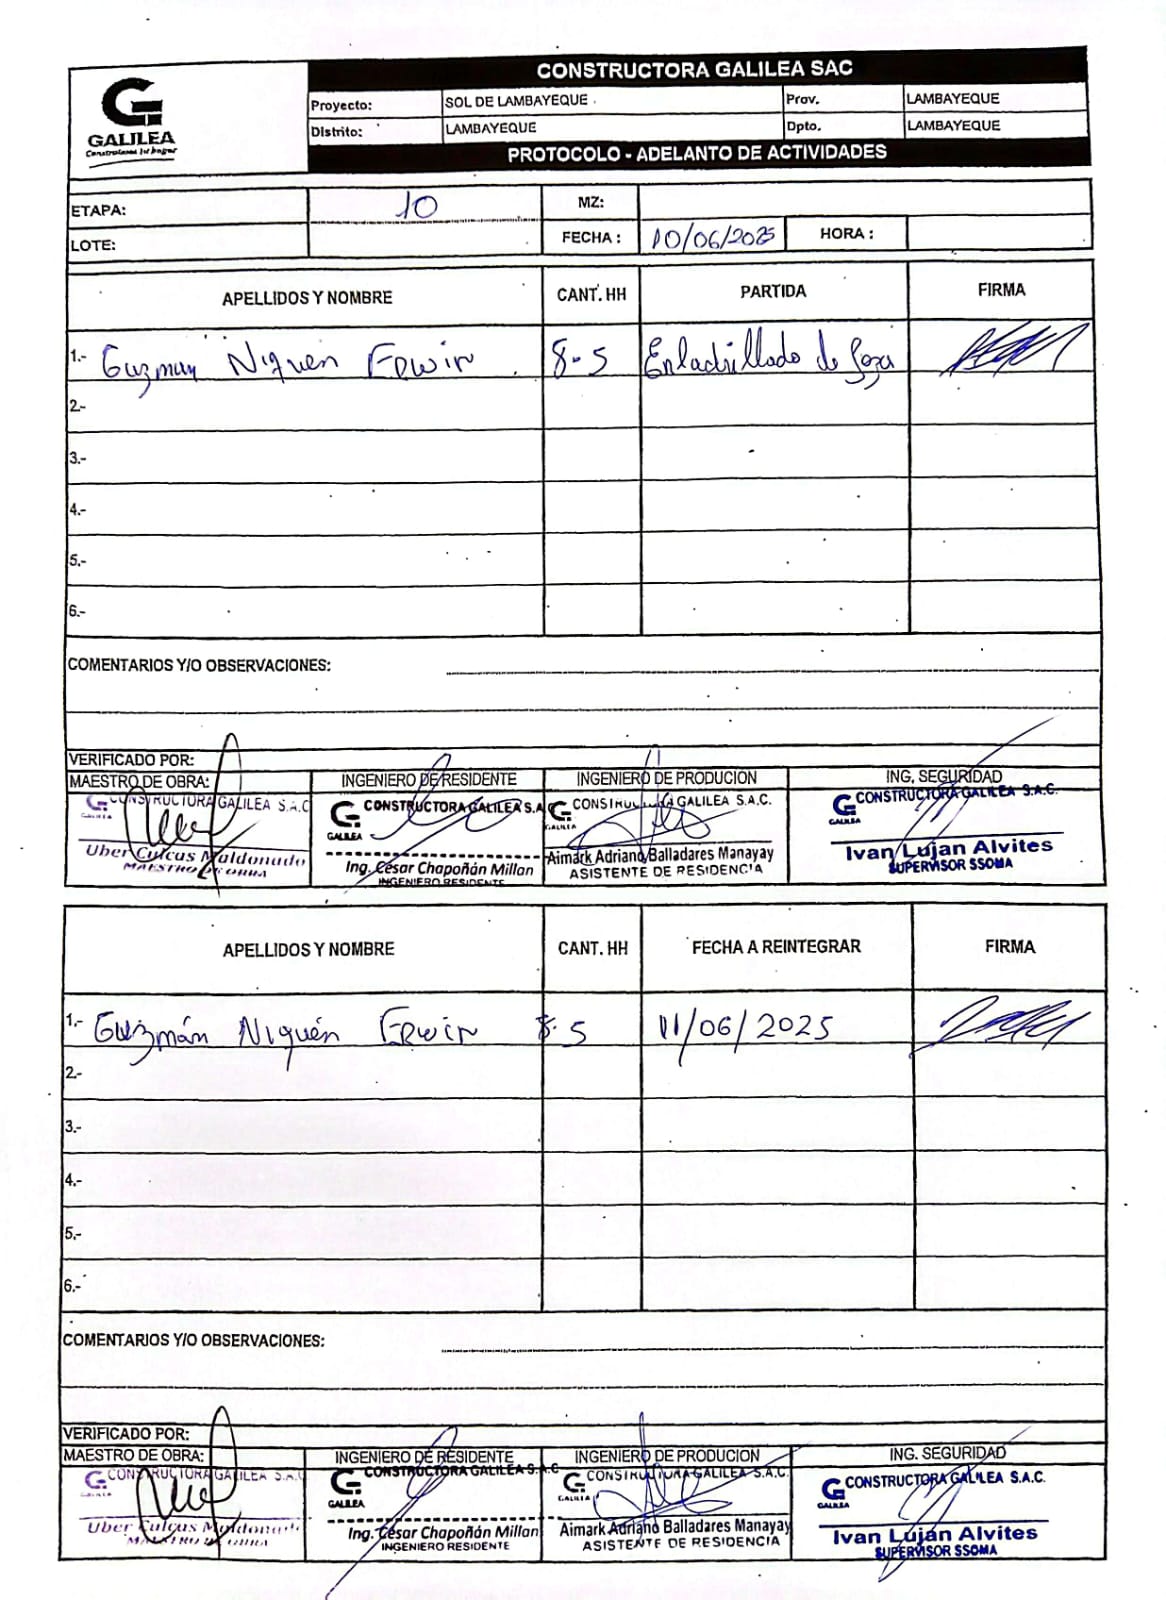 CONSTRUCTORA GALILEA SAC
GALILEA
Construimos tu hogar
Proyecto: SOL DE LAMBAYEQUE Prov. LAMBAYEQUE
Distrito: LAMBAYEQUE Dpto. LAMBAYEQUE
PROTOCOLO - ADELANTO DE ACTIVIDADES
ETAPA: 10 MZ:
LOTE: FECHA : 10/06/2025 HORA :
APELLIDOS Y NOMBRE CANT. HH PARTIDA FIRMA
1.- Guzman Niquén Erwin 8.5 Enladrillado de losa
2.-
3.-
4.-
5.-
6.-
COMENTARIOS Y/O OBSERVACIONES:
VERIFICADO POR:
MAESTRO DE OBRA: INGENIERO DE RESIDENTE INGENIERO DE PRODUCION ING, SEGURIDAD
CONSTRUCTORA GALILEA S.A.C CONSTRUCTORA GALILEA S.A.C CONSTRUCTORA GALILEA S.A.C. CONSTRUCTORA GALILEA S.A.C.
GALILEA GALILEA GALILEA GALILEA
Uber Culcas Maldonado Ing. César Chapoñán Millan Aimark Adriano Balladares Manayay Ivan Lujan Alvites
MAESTRO DE OBRA INGENIERO RESIDENTE ASISTENTE DE RESIDENCIA SUPERVISOR SSOMA
APELLIDOS Y NOMBRE CANT. HH FECHA A REINTEGRAR FIRMA
1.- Guzmán Niquén Erwin 8.5 11/06/2025
2.-
3.-
4.-
5.-
6.-
COMENTARIOS Y/O OBSERVACIONES:
VERIFICADO POR:
MAESTRO DE OBRA: INGENIERO DE RESIDENTE INGENIERO DE PRODUCION ING. SEGURIDAD
CONSTRUCTORA GALILEA S.A.C CONSTRUCTORA GALILEA S.A.C CONSTRUCTORA GALILEA S.A.C. CONSTRUCTORA GALILEA S.A.C.
GALILEA GALILEA GALILEA GALILEA
Uber Culcas Maldonado Ing. César Chapoñán Millan Aimark Adriano Balladares Manayay Ivan Luján Alvites
MAESTRO DE OBRA INGENIERO RESIDENTE ASISTENTE DE RESIDENCIA SUPERVISOR SSOMA